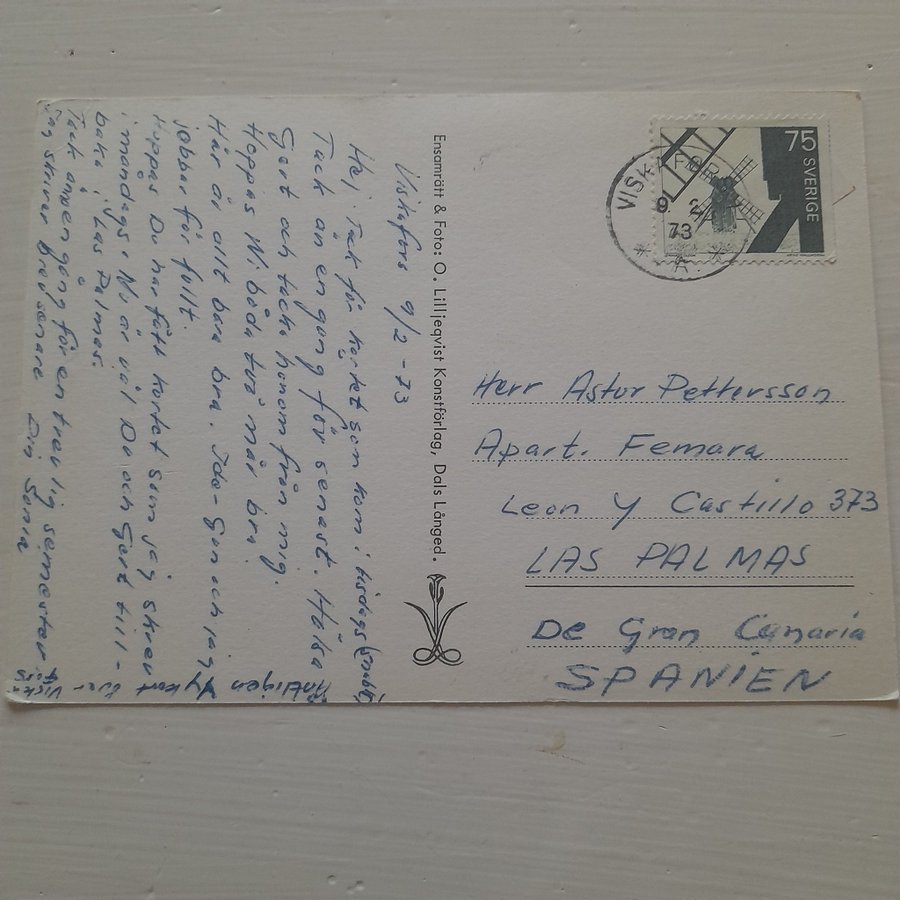 Viskafors 9/2 - 73
Hej, Tack för kortet som kom i tisdags (snabbt)
Tack än en gång för senast. Hälsa
Gert och tacka honom från mig.
Hoppas Ni båda två mår bra.
Här är allt bara bra. Ida-Gun och jag
jobbar för fullt.
Hoppas Du har fått kortet som jag skrev
i måndags. Nu är väl Du och Gert till-
baka i Las Palmas.
Tack ännu en gång för en trevlig semester.
Jag skriver brev senare Din Sonia
Äntligen vykort över Viska
fors
Ensamrätt & Foto: O. Lilljeqvist Konstförlag, Dals Långed.
75 SVERIGE
VISKAFO
9 2
73
* A *
Herr Astor Pettersson
Apart. Femara
Leon y Castillo 373
LAS PALMAS
De Gran Canaria
SPANIEN